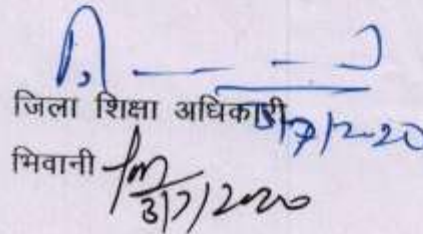 जिला शिक्षा अधिकारी
3/7/2020
भिवानी
3/7/2020